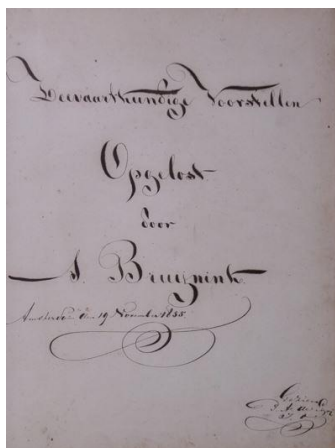 Zeevaartkundige Voorstellen
Opgelost
door
Bruijnink
Amsterdam den 19 November 1855
Gezien